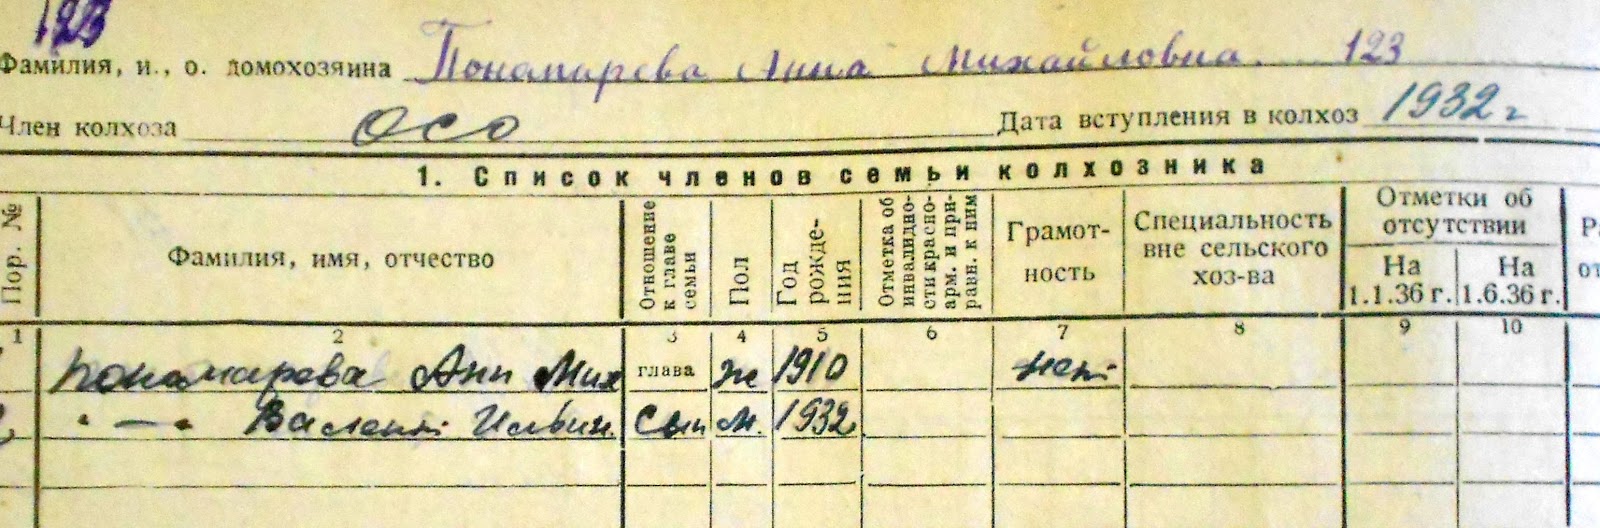 123
Фамилия, и., о. домохозяина Пономарева Анна Михайловна. 123
Член колхоза ОСО Дата вступления в колхоз 1932 г
1. Список членов семьи колхозника
Пор. № Фамилия, имя, отчество Отношение к главе семьи Пол Год рождения Отметка об инвалидно-сти красно-арм. и при-равн. к ним Грамот-ность Специальность вне сельского хоз-ва Отметки об отсутствии На 1.1.36 г. На 1.6.36 г.
1 2 3 4 5 6 7 8 9 10
Пономарева Анн Мих глава ж 1910 нет
" — " Валент Ильин. Сын м. 1932